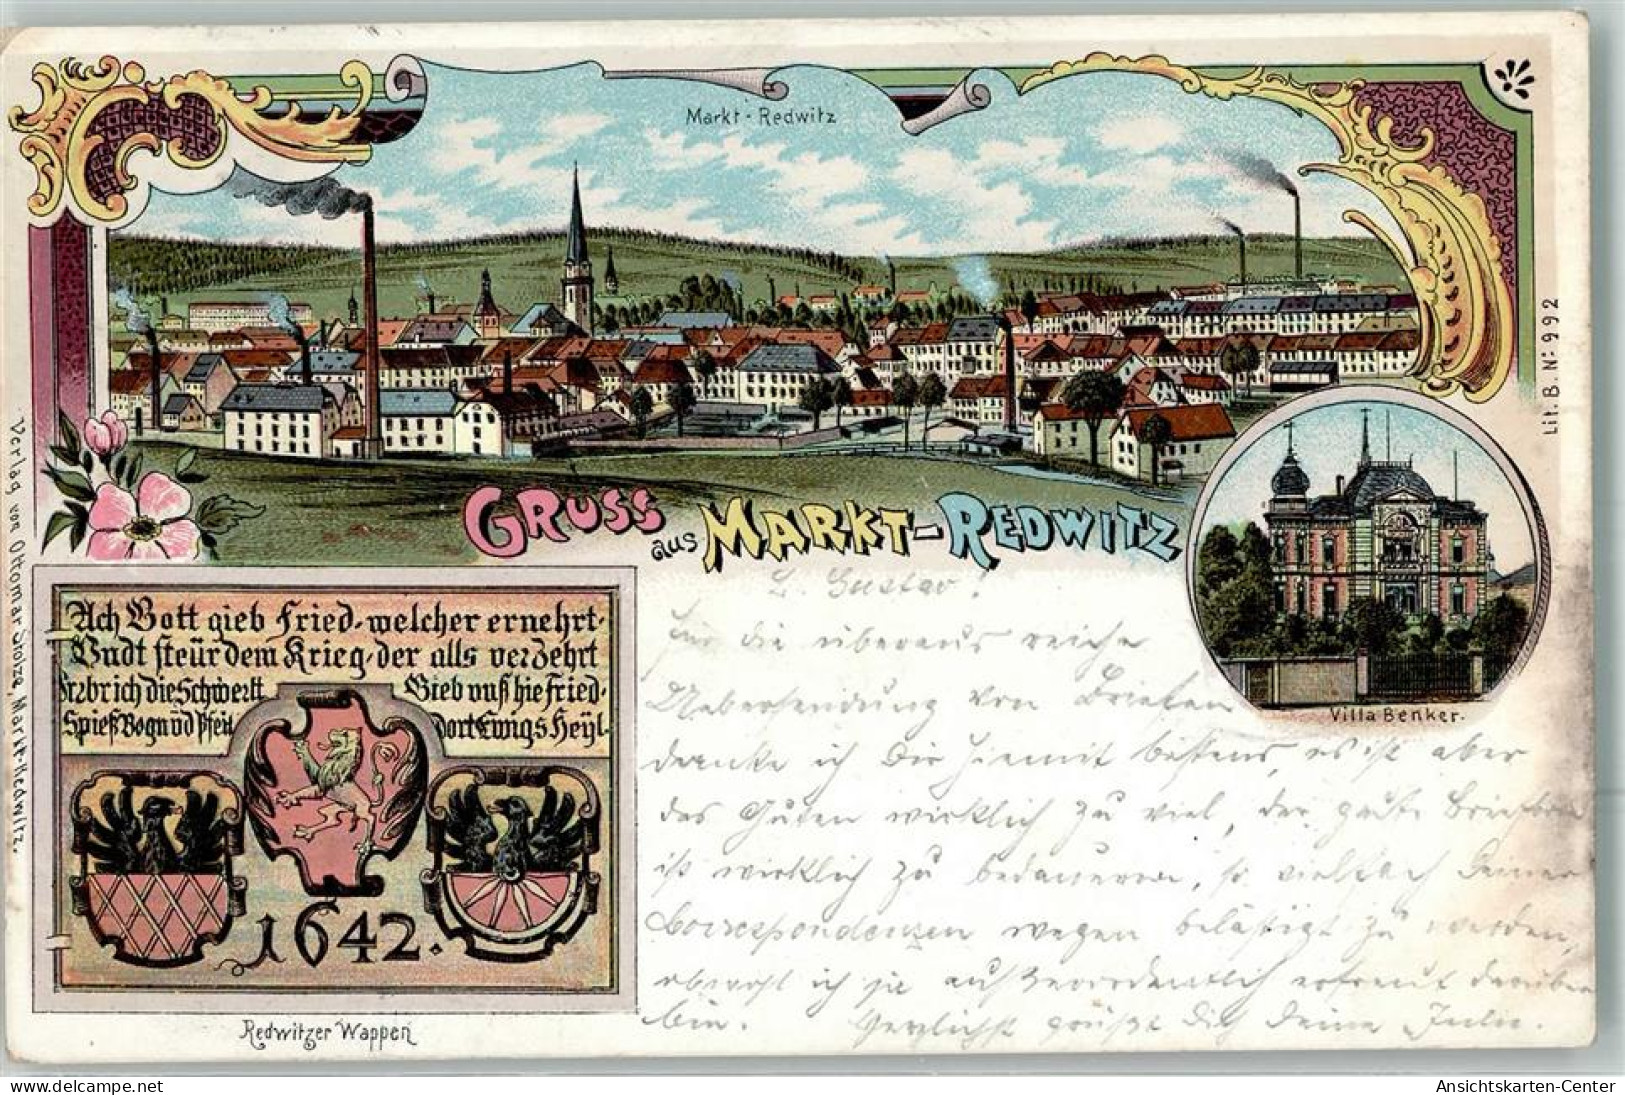 Markt-Redwitz
GRUSS aus MARKT-REDWITZ
Lit. B. No: 992
Villa Benker.
Verlag von Ottomar Stolze, Markt-Redwitz.
Ach Gott gieb Fried, welcher ernehrt,
Vndt steür dem Krieg, der alls verzehrt
Erzbrich die Schwertt Gieb unß hie Fried,
Spieß Bogn üd Pfeil dort Ewigs Heÿl.
1642.
Redwitzer Wappen
L. Gustav!
Für die überaus reiche
Uebersendung von Briefen
danke ich Dir hiemit bestens, es ist aber
das Guten wirklich zu viel, der gute Briefbote
ist wirklich zu bedauern, so vielfach Deiner
Correspondenzen wegen belästigt zu werden,
obwohl ich ja außerordentlich erfreut darüber
bin. Herzlichst grüßt Dich Deine Julie.
Ansichtskarten-Center